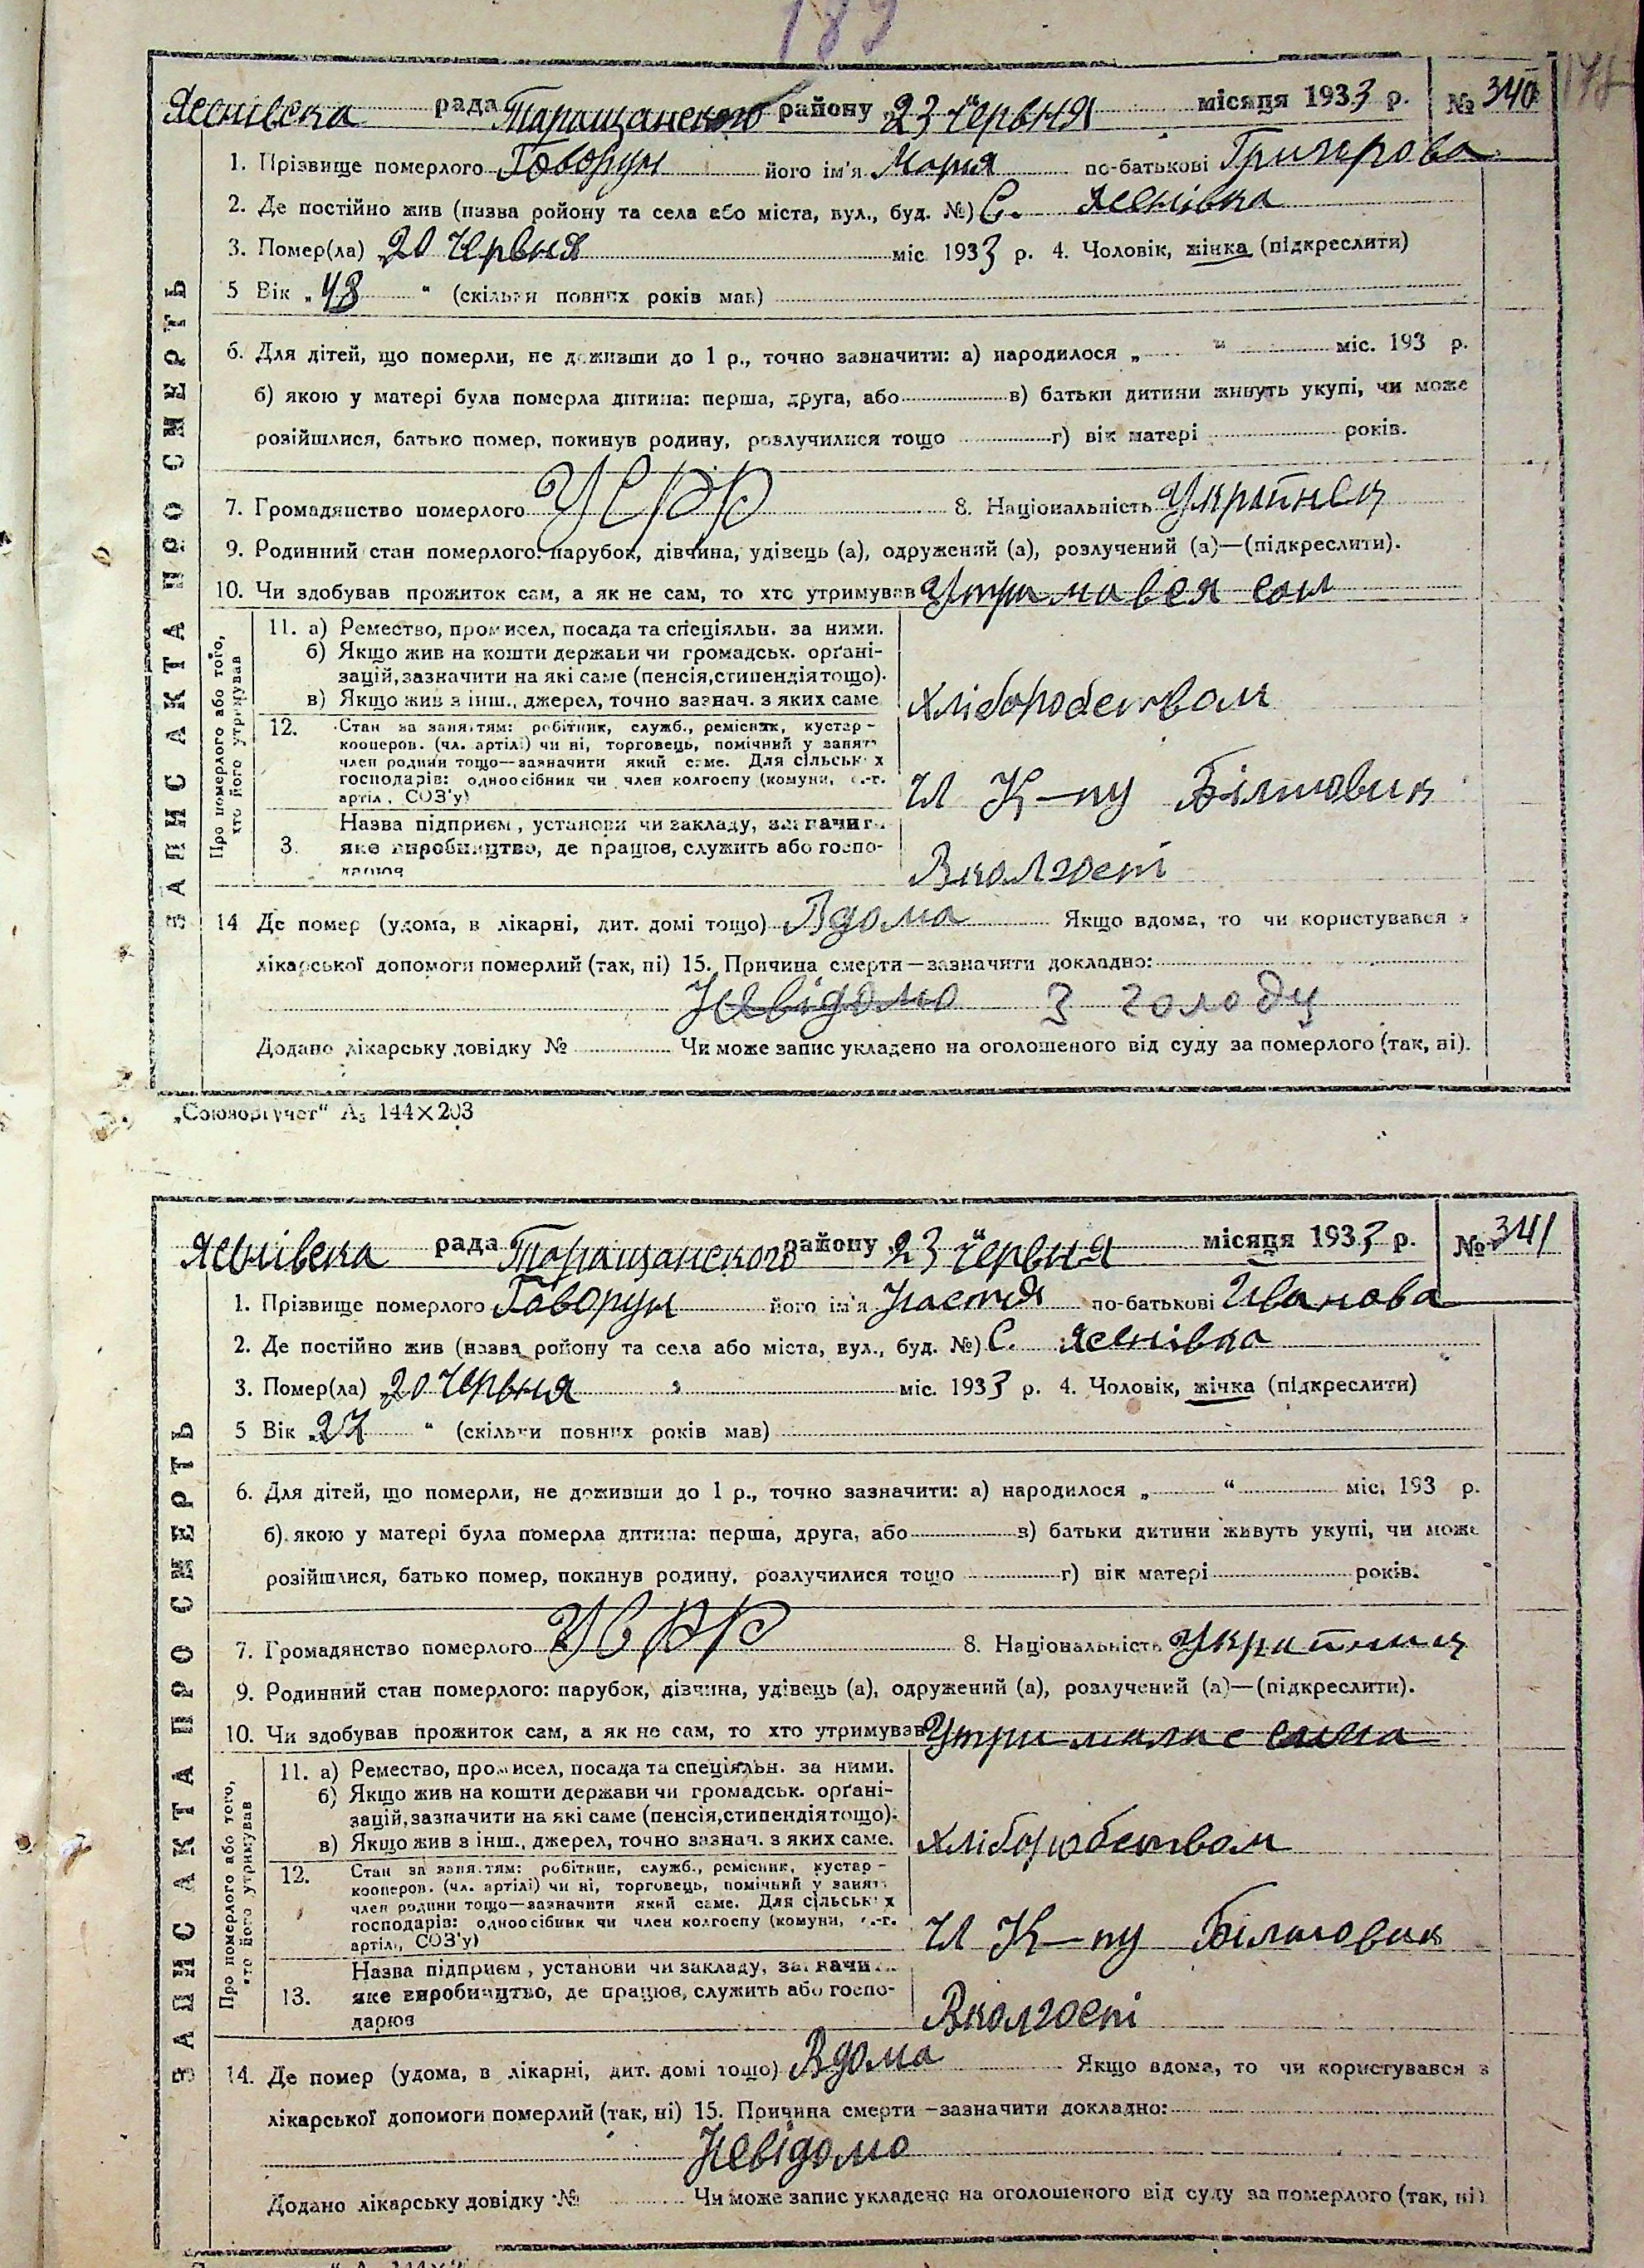 189
Яснівска рада Таращанского району „23 червня місяця 1933 р. № 340 178
1. Прізвище померлого Говорун його ім'я Мария по-батькові
2. Де постійно жив (назва ройону та села або міста, вул., буд. №) С. Яснівка
3. Помер(ла) „20 червня міс 1933 р. 4. Чоловік, жінка (підкреслити)
5 Вік „48 “ (скільки повних років мав)
6. Для дітей, що померли, не доживши до 1 р., точно зазначити: а) народилося „ “ міс. 193 р.
б) якою у матері була померла дитина: перша, друга, або в) батьки дитини живуть укупі, чи може
розійшлися, батько помер, покинув родину, розлучилися тощо г) вік матері років.
7. Громадянство померлого УСРР 8. Національність
9. Родинний стан померлого: парубок, дівчина, удівець (а), одружений (а), розлучений (а)—(підкреслити).
10. Чи здобував прожиток сам, а як не сам, то хто утримував Утримався сам
ЗАПИС АКТА ПРО СМЕРТЬ
Про померлого або того,
хто його утримував
11. а) Ремество, промисел, посада та спеціяльн. за ними.
б) Якщо жив на кошти держави чи громадськ. орґані-
зацій, зазначити на які саме (пенсія, стипендія тощо).
в) Якщо жив з інш., джерел, точно зазнач. з яких саме
Хліборобством
12. Стан за занятям: робітник, служб., ремісник, кустар-
кооперов. (чл. артілі) чи ні, торговець, помічний у занят
член родини тощо—зазначити який саме. Для сільськ х
господарів: одноосібник чи член колгоспу (комуни, с.-г.
артіл, СОЗ'у)
Ч К-пу Більшовик
Назва підприєм, установи чи закладу, зазначит
3. яке виробництво, де працює, служить або госпо-
дарює
Вколгості
14 Де помер (удома, в лікарні, дит. домі тощо) Вдома Якщо вдома, то чи користувався з
лікарської допомоги померлий (так, ні) 15. Причина смерти—зазначити докладно:
Невідомо З голоду
Додано лікарську довідку № Чи може запис укладено на оголошеного від суду за померлого (так, ні).
„Союзоргучет“ А₅ 144×203
Яснівска рада Таращанского району „23 червня місяця 1933 р. № 341
1. Прізвище померлого Говорун його ім'я Настя по-батькові Іванова
2. Де постійно жив (назва ройону та села або міста, вул., буд. №) С. Яснівка
3. Помер(ла) „20 червня міс. 1933 р. 4. Чоловік, жінка (підкреслити)
5 Вік „27 “ (скільки повних років мав)
6. Для дітей, що померли, не доживши до 1 р., точно зазначити: а) народилося „ “ міс. 193 р.
б) якою у матері була померла дитина: перша, друга, або в) батьки дитини живуть укупі, чи може
розійшлися, батько помер, покинув родину, розлучилися тощо г) вік матері років.
7. Громадянство померлого УСРР 8. Національність
9. Родинний стан померлого: парубок, дівчина, удівець (а), одружений (а), розлучений (а)—(підкреслити).
10. Чи здобував прожиток сам, а як не сам, то хто утримував Утрималас сама
ЗАПИС АКТА ПРО СМЕРТЬ
Про померлого або того,
хто його утримував
11. а) Ремество, промисел, посада та спеціяльн. за ними.
б) Якщо жив на кошти держави чи громадськ. орґані-
зацій, зазначити на які саме (пенсія, стипендія тощо).
в) Якщо жив з інш., джерел, точно зазнач. з яких саме.
Хліборобством
12. Стан за занятям: робітник, служб., ремісник, кустар-
кооперов. (чл. артілі) чи ні, торговець, помічний у занят
член родини тощо—зазначити який саме. Для сільськ х
господарів: одноосібник чи член колгоспу (комуни, с.-г.
артіл, СОЗ'у)
Ч К-пу Більшовик
Назва підприєм, установи чи закладу, зазначит
13. яке виробництво, де працює, служить або госпо-
дарює
Вколгості
14. Де помер (удома, в лікарні, дит. домі тощо) Вдома Якщо вдома, то чи користувався з
лікарської допомоги померлий (так, ні) 15. Причина смерти—зазначити докладно:
Невідомо
Додано лікарську довідку № Чи може запис укладено на оголошеного від суду за померлого (так, ні)